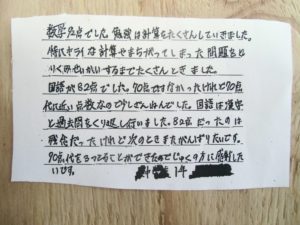 数学92点でした。勉強は計算をたくさんしていきました。
特にキライな計算やまちがってしまった問題をと
りくみせいかいするまでたくさんときました。
国語が82点でした。90点ではなかったけれど90点
代に近い点数なので少しざんねんでした。国語は漢字
と過去問をくり返し行いました。82点だったのは
残念だったけれど次のときまたがんばりたいです。
90点代を3つとることができたのでじゅくの方に感謝した
いです。 中 1年